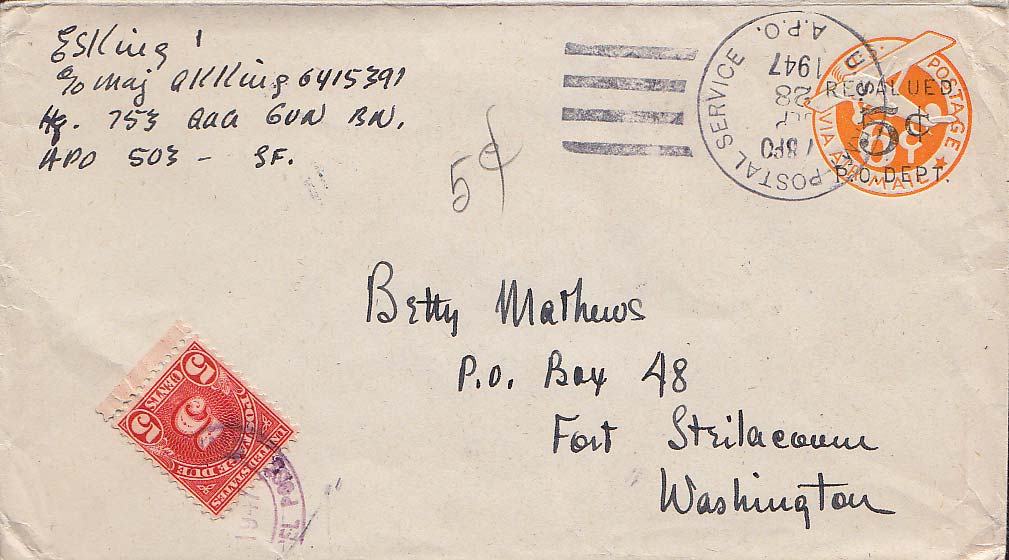 ESKing
c/o Maj aKKing 6415391
Hq. 753 aaa GUN BN.
APO 503 - SF.
5¢
U.S. POSTAL SERVICE
A.P.O.
1947
28
SEP
U.S. POSTAGE
REVALUED
5¢
P.O. DEPT.
VIA AIR MAIL
Betty Mathews
P.O. Box 48
Fort Steilacoom
Washington
5
CENTS
5
5
UNITED STATES
POSTAGE DUE
1947